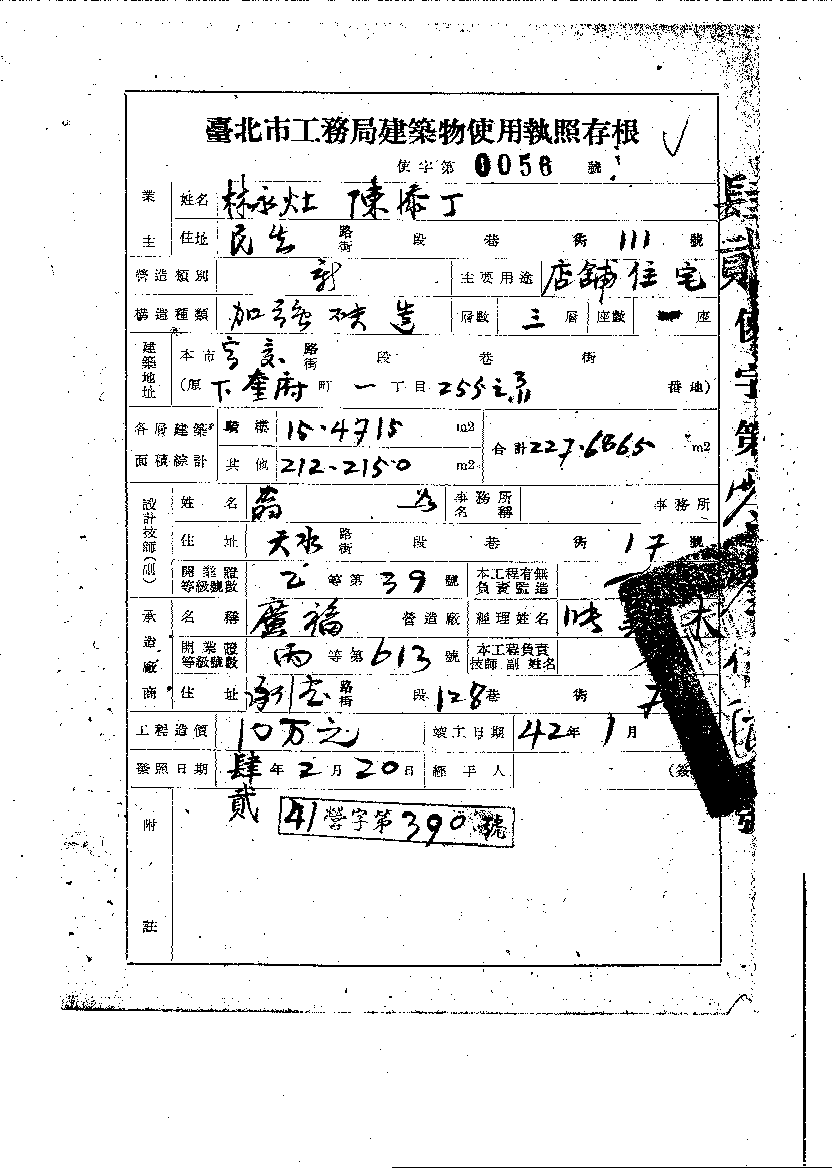 臺北市工務局建築物使用執照存根
使字第 0056 號
業主 姓名 林永灶 陳添丁
住址 民生 路街 段 巷 街 111 號
營造類別 新 主要用途 店舖住宅
構造種類 加強磚造 層數 三層 座數 一座
建築地址 本市 路街 段 巷 街
(原下奎府町一丁目255之 番地)
各層建築面積綜計 騎樓 15.4715 m2 合計 227.6865 m2
其他 212.2150 m2
設計技師(副) 姓名 事務所名稱 事務所
住址 天水 路街 段 巷 街 17 號
開業證等級號數 乙等第39號 本工程有無負責監造
承造廠商 名稱 廣福 營造廠 經理姓名
開業證等級號數 丙等第613號 本工程負責技師副姓名
住址 承德 路街 段 128巷 街
工程造價 10万元 竣工日期 42年1月
發照日期 肆貳年2月20日 經手人
附註
41營字第390號
肆貳使字第